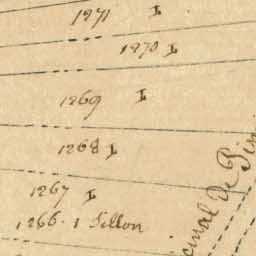 1271 I
1270 I
1269 I
1268 I
1267 I
1266. 1 Sillon
cinal De Pin